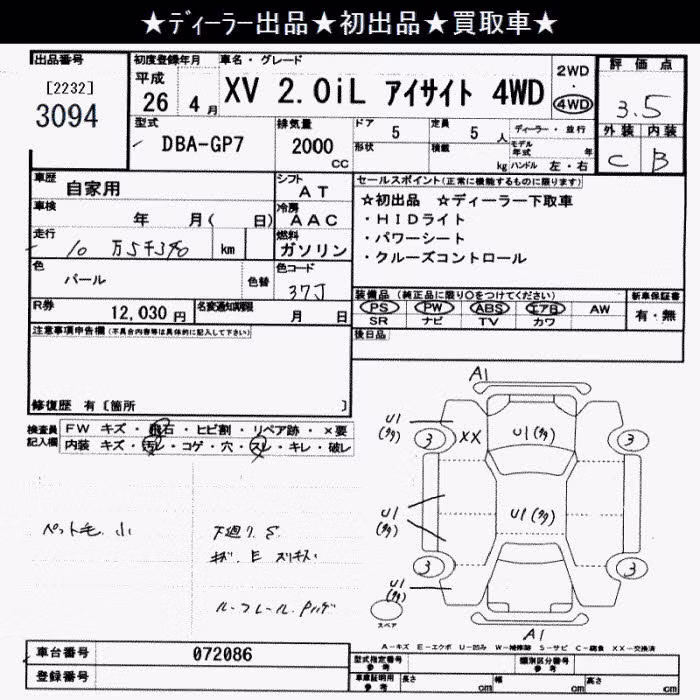 ★ディーラー出品★初出品★買取車★
出品番号
[2232]
3094
初度登録年月
平成
26 4 月
車名・グレード
XV 2.0iL アイサイト 4WD
2WD
4WD
評価点
3.5
外装 内装
C B
型式
DBA-GP7
排気量
2000
CC
ドア 5
形状
定員 5 人
積載 kg
ディーラー・並行
モデル年式 年
ハンドル 左・右
車歴
自家用
シフト
AT
車検
年 月( 日)
冷房
AAC
走行
10万5千390 km
燃料
ガソリン
色
パール
色替
色コード
37J
R券
12,030 円
名変通知期限
月 日
セールスポイント(正常に機能するものに限ります)
☆初出品 ☆ディーラー下取車
・HIDライト
・パワーシート
・クルーズコントロール
装備品(純正品に限り○をつけてください)
PS PW ABS エアB AW
SR ナビ TV カワ
新車保証書
有・無
後日品
注意事項申告欄(不具合内容等は具体的に記入して下さい)
修復歴 有〔箇所 〕
検査員記入欄
FW キズ・飛石・ヒビ割・リペア跡・×要
内装 キズ・汚レ・コゲ・穴・スレ・キレ・破レ
ペット毛 小
下廻り S
キズ、E スリキズ
A1
U1
(タタ)
3
XX
U1(タタ)
3
U1
(タタ)
U1(タタ)
3
3
U1
(タタ)
スペア
A1
A-キズ E-エクボ U-凹み W-補修跡 S-サビ C-腐食 XX-交換済
車台番号
072086
登録番号
型式指定番号
参考
類別区分番号
参考
車庫証明用
参考
長さ cm
幅 cm
高さ cm